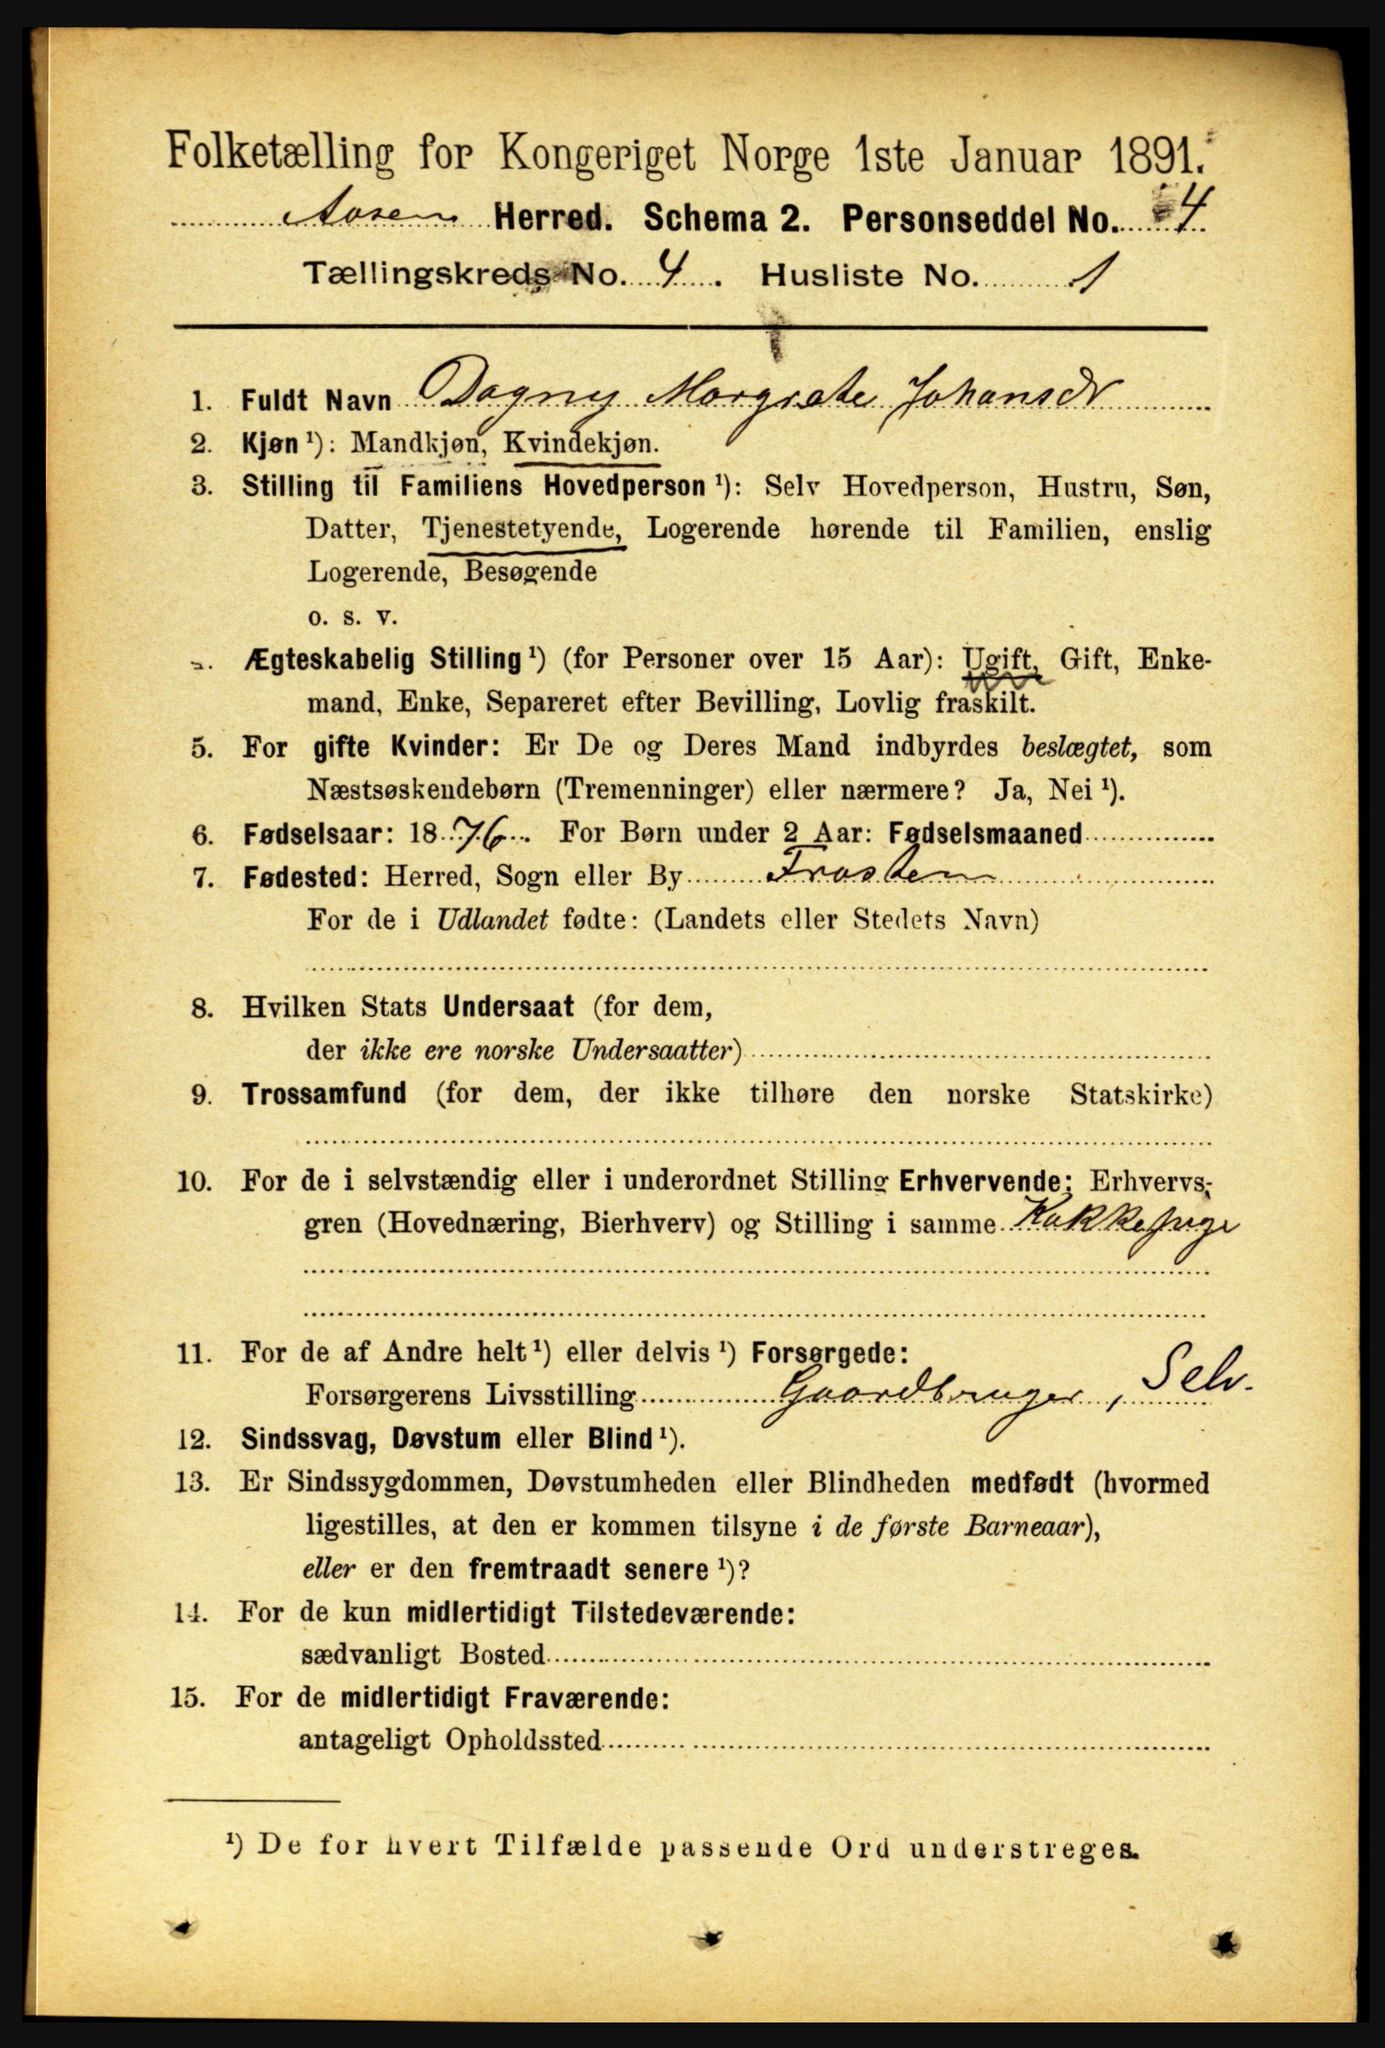 Folketælling for Kongeriget Norge 1ste Januar 1891.
Aasen Herred. Schema 2. Personseddel No. 4
Tællingskreds No. 4. Husliste No. 1
1. Fuldt Navn Dagny Margrete Johansdr
2. Kjøn ¹): Mandkjøn, Kvindekjøn.
3. Stilling til Familiens Hovedperson ¹): Selv Hovedperson, Hustru, Søn,
Datter, Tjenestetyende, Logerende hørende til Familien, enslig
Logerende, Besøgende
o. s. v.
Ægteskabelig Stilling ¹) (for Personer over 15 Aar): Ugift, Gift, Enke-
mand, Enke, Separeret efter Bevilling, Lovlig fraskilt.
5. For gifte Kvinder: Er De og Deres Mand indbyrdes beslægtet, som
Næstsøskendebørn (Tremenninger) eller nærmere? Ja, Nei ¹).
6. Fødselsaar: 1876. For Børn under 2 Aar: Fødselsmaaned
7. Fødested: Herred, Sogn eller By Frosten
For de i Udlandet fødte: (Landets eller Stedets Navn)
8. Hvilken Stats Undersaat (for dem,
der ikke ere norske Undersaatter)
9. Trossamfund (for dem, der ikke tilhøre den norske Statskirke)
10. For de i selvstændig eller i underordnet Stilling Erhvervende: Erhvervs-
gren (Hovednæring, Bierhverv) og Stilling i samme Kokkepige
11. For de af Andre helt ¹) eller delvis ¹) Forsørgede:
Forsørgerens Livsstilling Gaardbruger, Selv.
12. Sindssvag, Døvstum eller Blind ¹).
13. Er Sindssygdommen, Døvstumheden eller Blindheden medfødt (hvormed
ligestilles, at den er kommen tilsyne i de første Barneaar),
eller er den fremtraadt senere ¹)?
14. For de kun midlertidigt Tilstedeværende:
sædvanligt Bosted
15. For de midlertidigt Fraværende:
antageligt Opholdssted
¹) De for hvert Tilfælde passende Ord understreges.